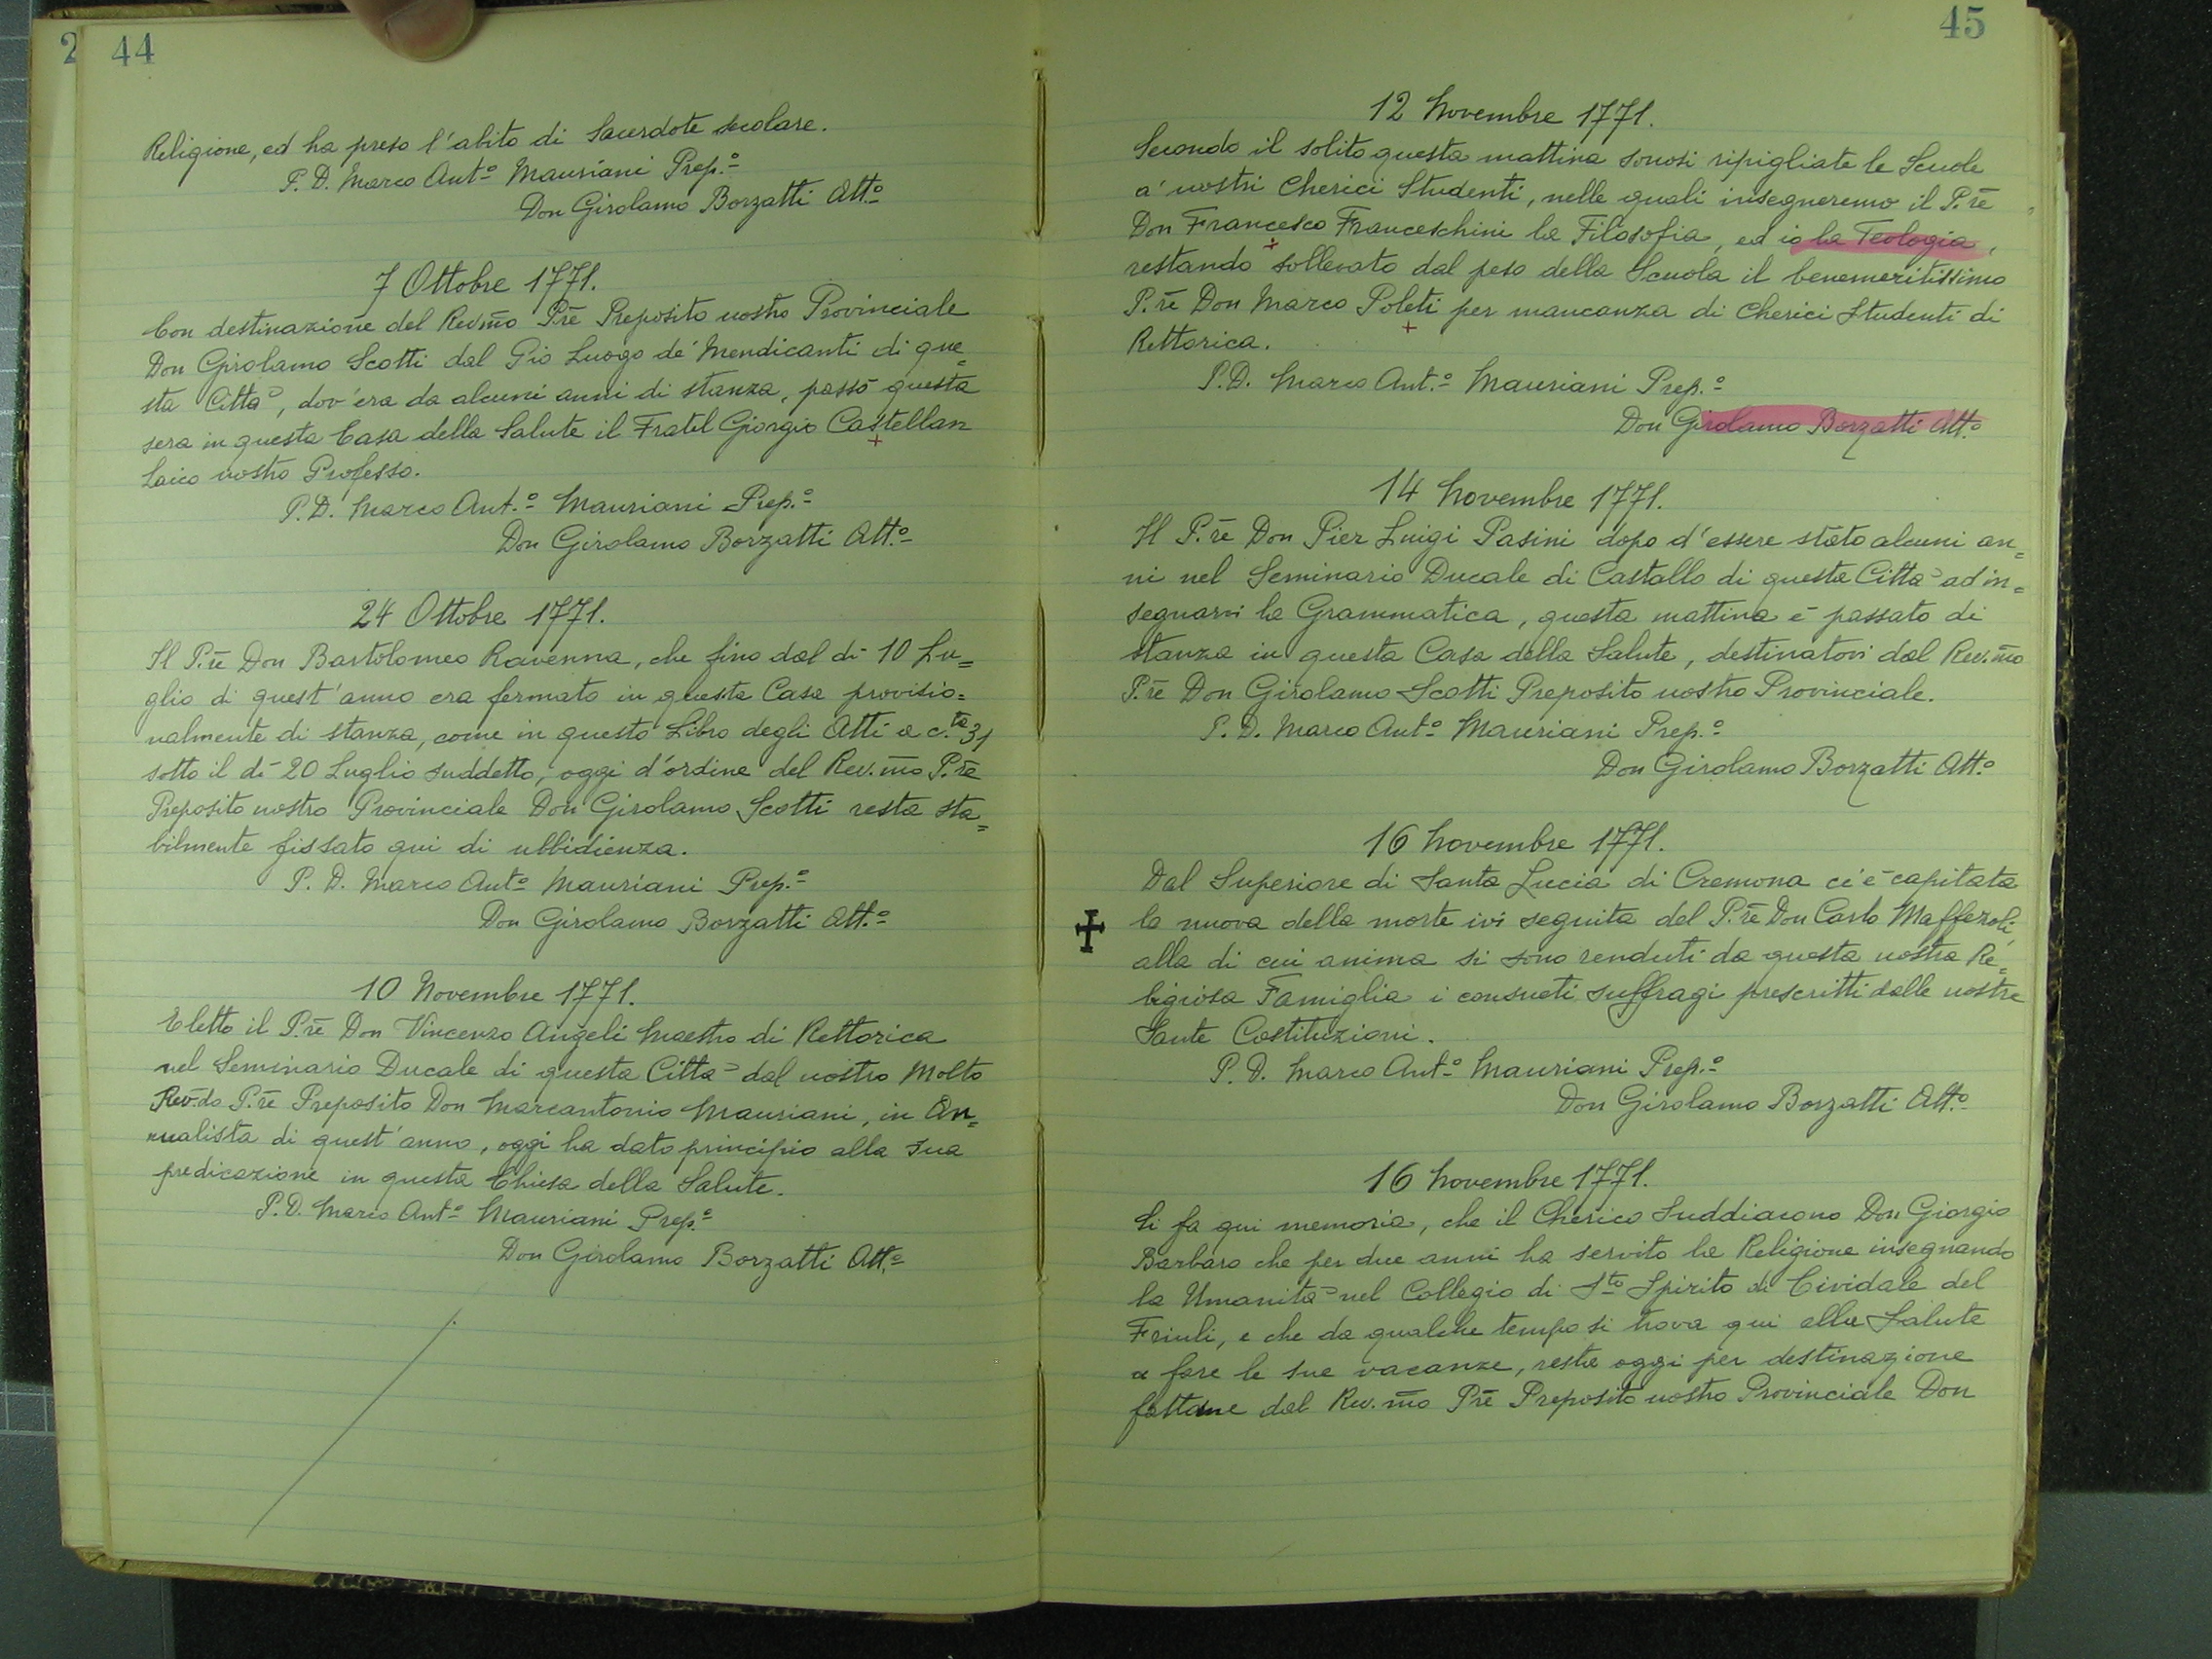 2
44
Religione, ed ha preso l'abito di Sacerdote secolare.
P. D. Marco Ant.o Mauriani Prep.o
Don Girolamo Borzatti Att.o
7 Ottobre 1771.
Con destinazione del Revm̄o P.rē Preposito nostro Provinciale
Don Girolamo Scotti dal Pio Luogo de' Mendicanti di que=
sta Città, dov'era da alcuni anni di stanza, passò questa
sera in questa Casa della Salute il Fratel Giorgio Castellan
Laico nostro Professo.
P. D. Marco Ant.o Mauriani Prep.o
Don Girolamo Borzatti Att.o
24 Ottobre 1771.
Il P.rē Don Bartolomeo Ravenna, che fino dal dì 10 Lu=
glio di quest'anno era fermato in questa Casa provisio=
nalmente di stanza, come in questo Libro degli Atti a c.ta 31
sotto il dì 20 Luglio suddetto, oggi d'ordine del Rev.m̄o P.rē
Preposito nostro Provinciale Don Girolamo Scotti resta sta=
bilmente fissato qui di ubbidienza.
P. D. Marco Ant.o Mauriani Prep.o
Don Girolamo Borzatti Att.o
10 Novembre 1771.
Eletto il P.rē Don Vincenzo Angeli Maestro di Rettorica
nel Seminario Ducale di questa Città dal nostro Molto
Rev.do P.rē Preposito Don Marcantonio Mauriani, in An=
nualista di quest'anno, oggi ha dato principio alla sua
predicazione in questa Chiesa della Salute.
P. D. Marco Ant.o Mauriani Prep.o
Don Girolamo Borzatti Att.o
45
12 Novembre 1771.
Secondo il solito questa mattina sonosi ripigliate le Scuole
a' nostri Cherici Studenti, nelle quali insegneremo il P.rē
Don Francesco Franceschini la Filosofia, ed io la Teologia,
restando sollevato dal peso della Scuola il benemeritissimo
P.rē Don Marco Poleti per mancanza di Cherici Studenti di
Rettorica.
P. D. Marco Ant.o Mauriani Prep.o
Don Girolamo Borzatti Att.o
14 Novembre 1771.
Il P.rē Don Pier Luigi Pasini dopo d'essere stato alcuni an=
ni nel Seminario Ducale di Castallo di questa Città ad in=
segnarvi la Grammatica, questa mattina è passato di
stanza in questa Casa della Salute, destinatovi dal Rev.m̄o
P.rē Don Girolamo Scotti Preposito nostro Provinciale.
P. D. Marco Ant.o Mauriani Prep.o
Don Girolamo Borzatti Att.o
16 Novembre 1771.
Dal Superiore di Santa Lucia di Cremona ci è capitata
la nuova della morte ivi seguita del P.rē Don Carlo Maffezoli,
alla di cui anima si sono renduti da questa nostra Re=
ligiosa Famiglia i consueti suffragi prescritti dalle nostre
Sante Costituzioni.
P. D. Marco Ant.o Mauriani Prep.o
Don Girolamo Borzatti Att.o
16 Novembre 1771.
Si fa qui memoria, che il Cherico Suddiacono Don Giorgio
Barbaro che per due anni ha servito la Religione insegnando
la Umanità nel Collegio di S.to Spirito di Cividale del
Friuli, e che da qualche tempo si trova qui alla Salute
a fare le sue vacanze, resta oggi per destinazione
fattane dal Rev.m̄o P.rē Preposito nostro Provinciale Don